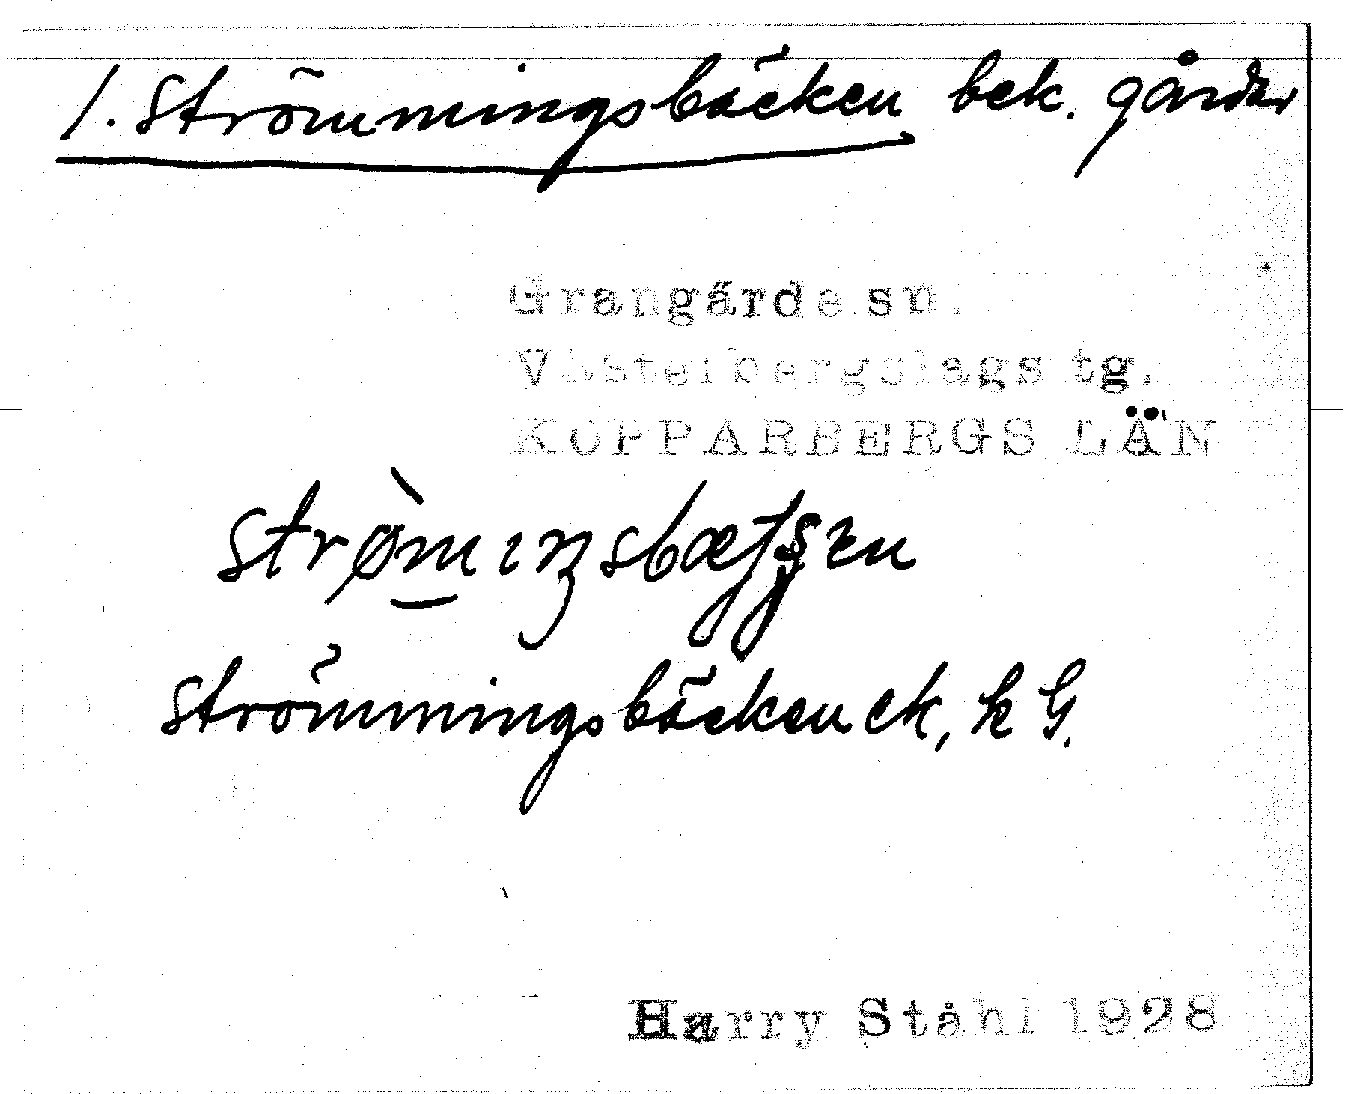 1. Strömmingsbäcken bek. gårdar
Grangärde sn.
Västerbergslags tg.
KOPPARBERGS LÄN
Strömmingsbäcken ek, h G.
Harry Ståhl 1928